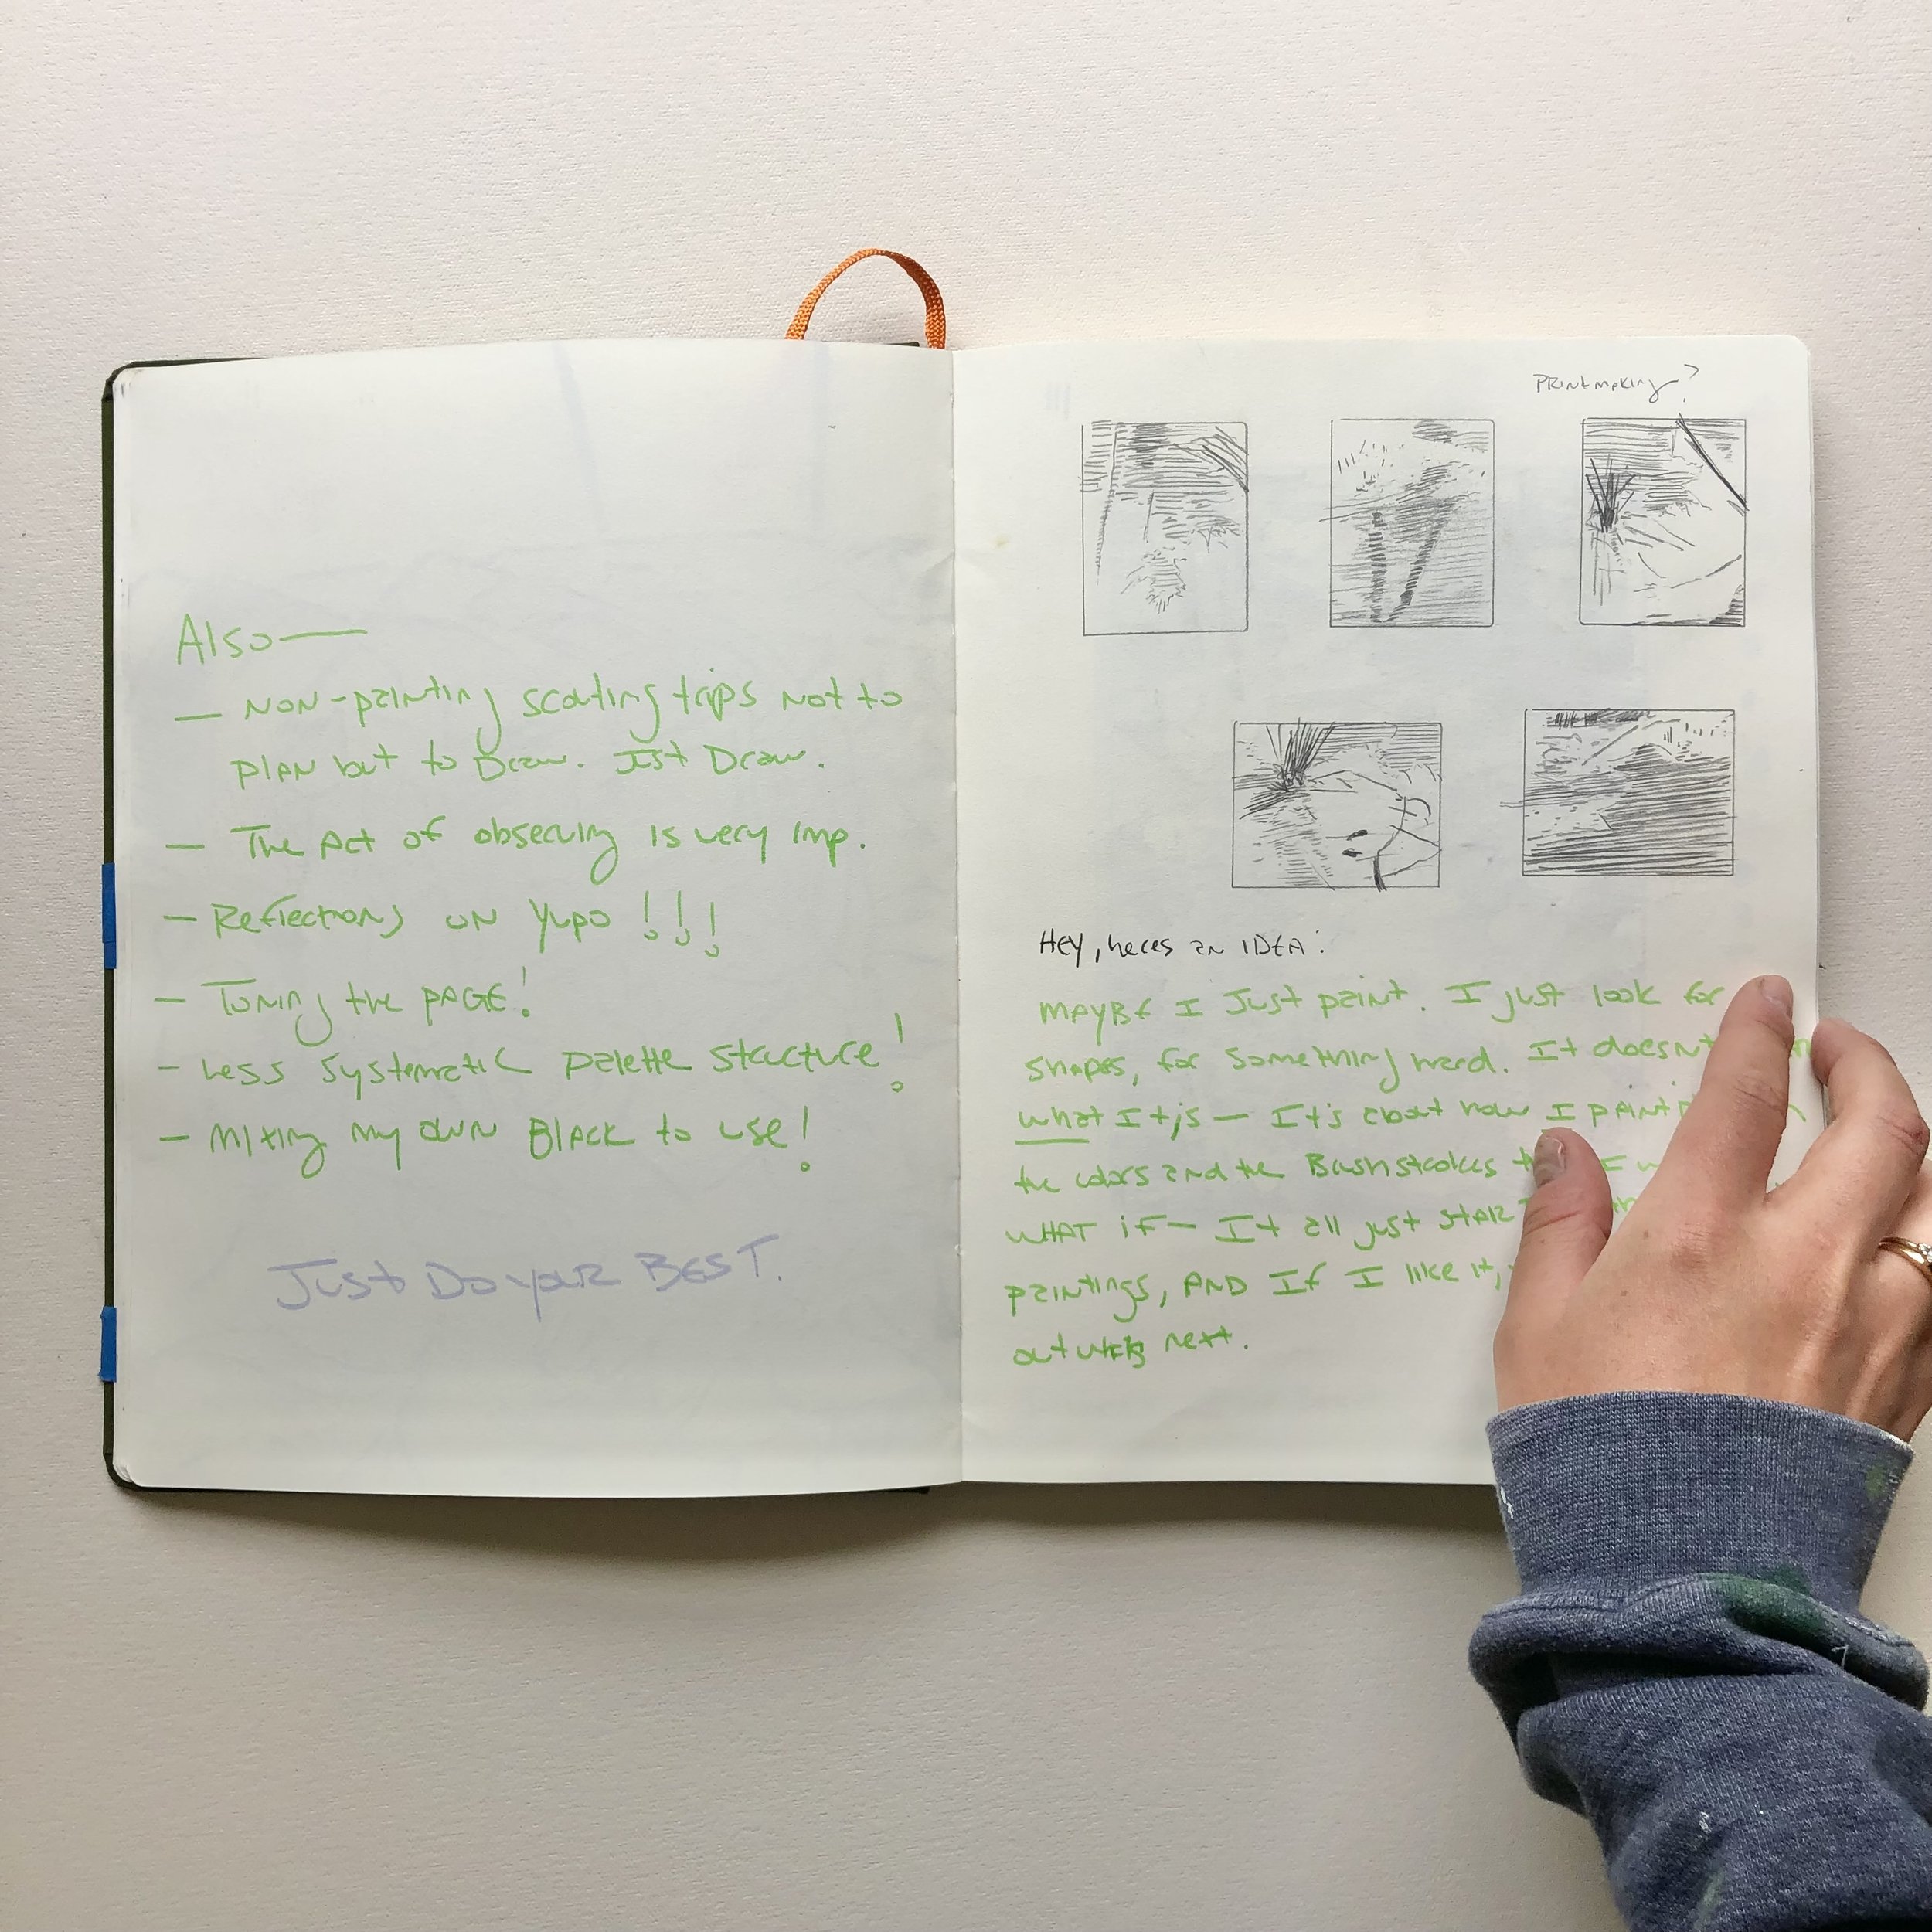 Also—
— NON-painting scouting trips not to
plan but to Draw. Just Draw.
— The Act of observing is very imp.
— Reflections on Yupo !!!
— Toning the PAGE!
— Less systematic palette structure!
— Mixing my own BLACK to use!
Just Do your BEST.
Printmaking?
HEY, heres an IDEA:
MAYBE I Just paint. I just look for
shapes, for something hard. It doesn't
what It is — It's about how I paint
the colors and the Brushstrokes
WHAT if — It all just
paintings, AND If I like it,
out next.